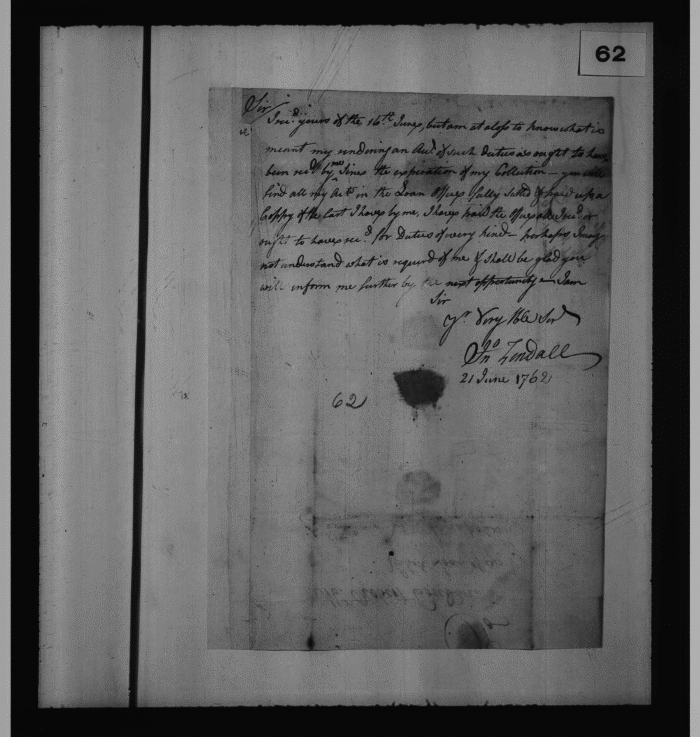 62
Sir/
I rec.d yours of the 16th June, but am at a loss to know what is
meant my rendering an Acct of such Duties as ought to have
been rec.d by me Since the expiration of my Collection — you will
find all my Accts in the Loan Office fully Settld & paid up a
Coppy of the last I have by me, I have paid the Office all I rec.d or
ought to have rec.d for Duties of every kind — perhaps I may
not understand what is requird of me if I shall be glad you
will inform me further by the next opportunity — I am
Sir
yr. Very Hble Servt
Jno Zendall
21 June 1762
62